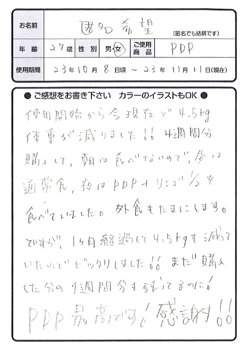 お名前 匿名希望
(匿名でも結構です)
年齢 27歳 性別 男・女 ご使用商品 PDP
使用期間 23年10月8日頃 ～ 23年11月11日(現在)
●ご感想をお書き下さい カラーのイラストもOK●
使用開始から今現在で4.5kg
体重が減りました!! 4週間分
購入して、朝は食べないので、昼は
通常食、夜はPDP+リンゴ1/2を
食べていました。外食もたまにします。
ですが、1ヶ月経過して4.5kgも減って
いたのでビックリしました!! まだ購入
した分の1週間分も残ってるのに!
PDP最高です! 感謝!!